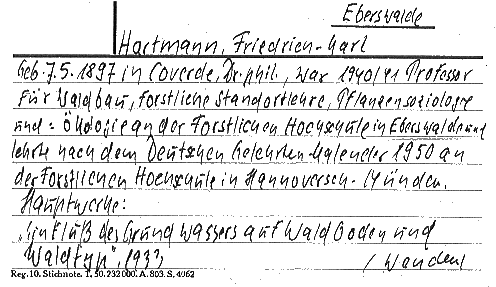 Eberswalde
Hartmann, Friedrich-Karl
Geb. 7.5. 1897 in Coverde, Dr. phil., war 1940/41 Professor
für Waldbau, forstliche Standortlehre, Pflanzensoziologie
und = Ökologie an der Forstlichen Hochschule in Eberswalde und
lehrte nach dem Deutschen Gelehrten-Kalender 1950 an
der Forstlichen Hochschule in Hannoversch-Münden.
Hauptwerke:
"Einfluß des Grundwassers auf Waldboden und
Waldtyp", 1933
/ Wandent
Reg. 10. Stichnote. T. 50. 232000. A. 803. S. 4062